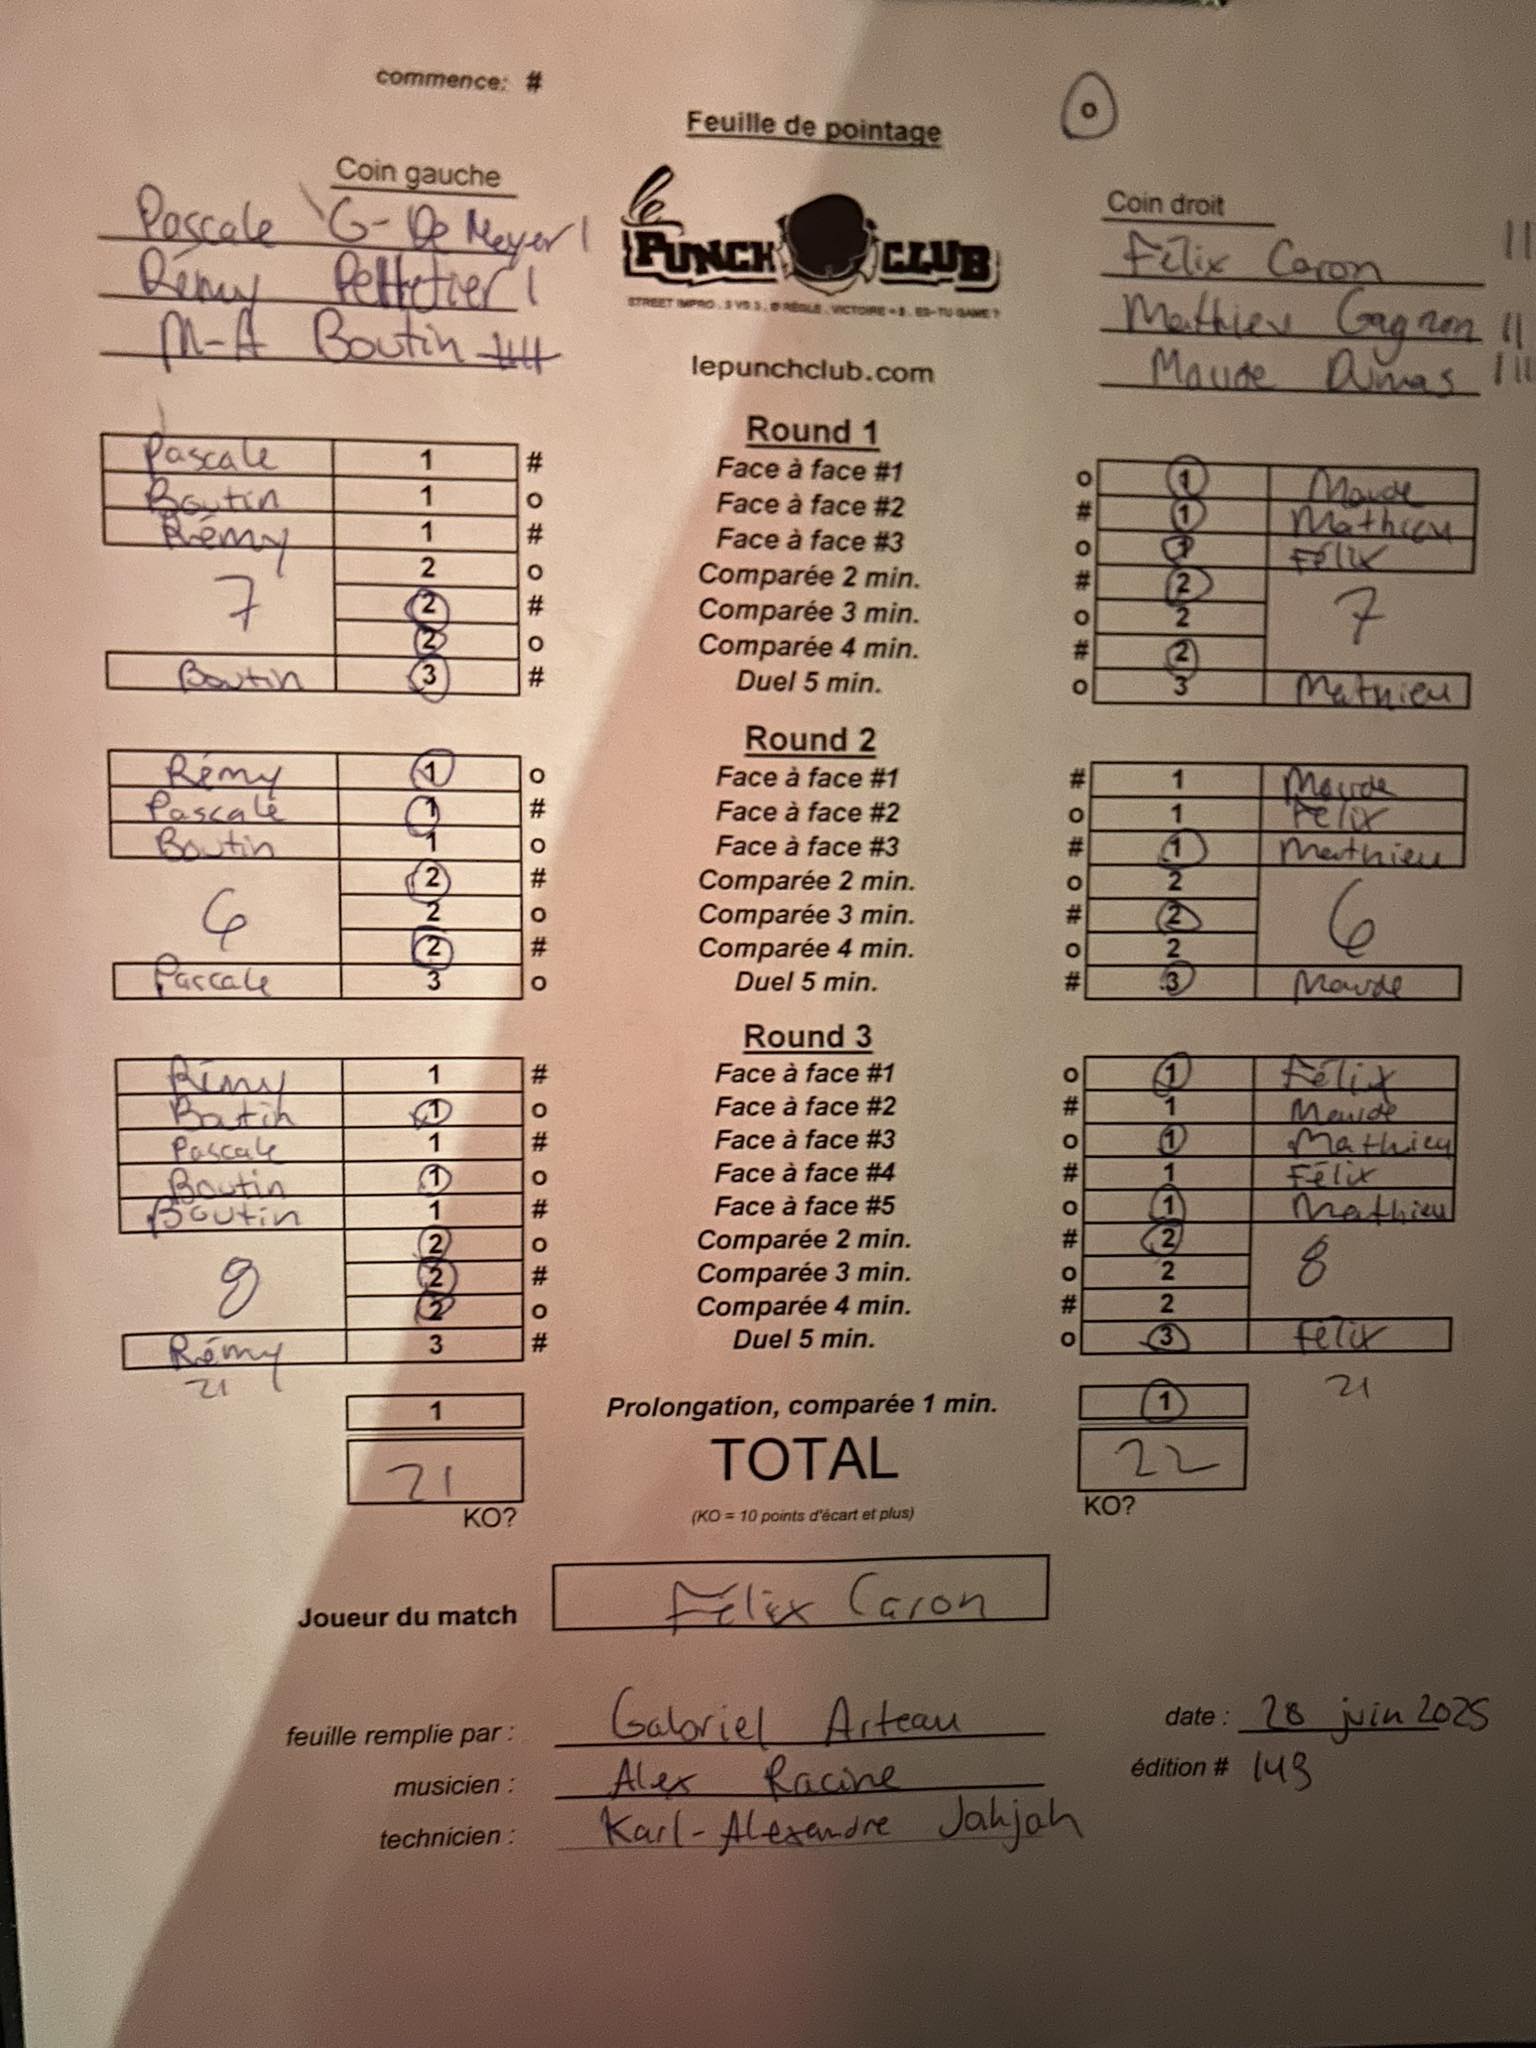 commence: # o
Feuille de pointage
Coin gauche
Coin droit
Pascale G-De Meyer I
Rémy Pelletier I
M-A Boutin
le PUNCH CLUB
STREET IMPRO . 3 VS 3 . Ø RÈGLE . VICTOIRE = $ . ES-TU GAME ?
lepunchclub.com
Félix Caron II
Mathieu Gagnon II
Maude Dumas III
Round 1
Pascale 1 # Face à face #1 o 1 Maude
Boutin 1 o Face à face #2 # 1 Mathieu
Rémy 1 # Face à face #3 o 1 Félix
2 o Comparée 2 min. # 2
7 2 # Comparée 3 min. o 2 7
2 o Comparée 4 min. # 2
Boutin 3 # Duel 5 min. o 3 Mathieu
Round 2
Rémy 1 o Face à face #1 # 1 Maude
Pascale 1 # Face à face #2 o 1 Félix
Boutin 1 o Face à face #3 # 1 Mathieu
2 # Comparée 2 min. o 2
6 2 o Comparée 3 min. # 2 6
2 # Comparée 4 min. o 2
Pascale 3 o Duel 5 min. # 3 Maude
Round 3
Rémy 1 # Face à face #1 o 1 Félix
Boutin 1 o Face à face #2 # 1 Maude
Pascale 1 # Face à face #3 o 1 Mathieu
Boutin 1 o Face à face #4 # 1 Félix
Boutin 1 # Face à face #5 o 1 Mathieu
2 o Comparée 2 min. # 2
8 2 # Comparée 3 min. o 2 8
2 o Comparée 4 min. # 2
Rémy 3 # Duel 5 min. o 3 Félix
21 21
1 Prolongation, comparée 1 min. 1
21 TOTAL 22
KO? (KO = 10 points d'écart et plus) KO?
Joueur du match Félix Caron
feuille remplie par : Gabriel Arteau date : 28 juin 2025
musicien : Alex Racine édition # 149
technicien : Karl-Alexandre Jahjah